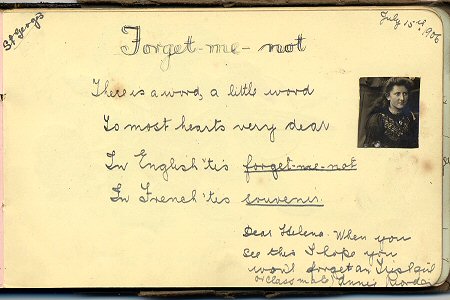 St George's
July 15th, 1906
Forget-me-not
There is a word, a little word
To most hearts very dear
In English 'tis forget-me-not
In French 'tis souvenir.
Dear Helena. When you
see this I hope you
won't forget an Irish girl
or class mate Annie Riordan